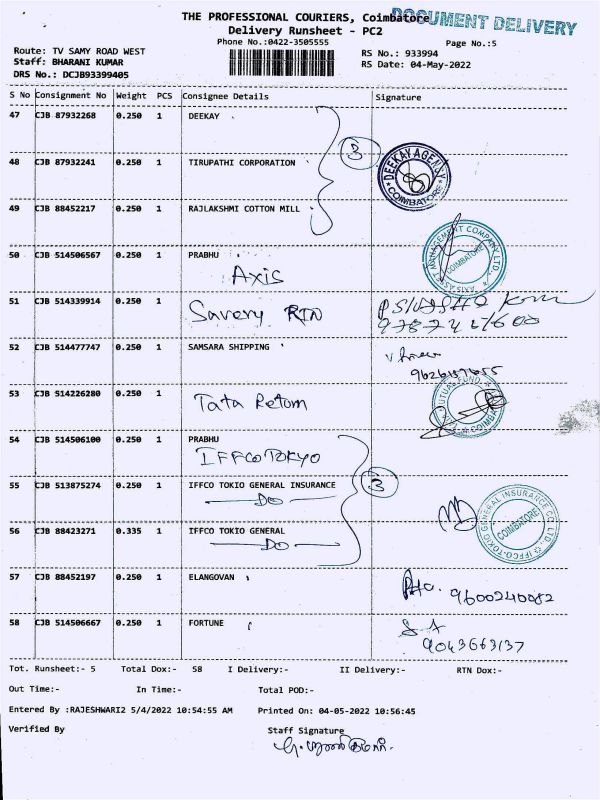 THE PROFESSIONAL COURIERS, Coimbatore
DOCUMENT DELIVERY
Delivery Runsheet - PC2
Phone No.:0422-3505555
Page No.:5
Route: TV SAMY ROAD WEST
RS No.: 933994
Staff: BHARANI KUMAR
RS Date: 04-May-2022
DRS No.: DCJB93399405
S No Consignment No Weight PCS Consignee Details Signature
47 CJB 87932268 0.250 1 DEEKAY
3
48 CJB 87932241 0.250 1 TIRUPATHI CORPORATION
DEEKAY AGENCY COIMBATORE
49 CJB 88452217 0.250 1 RAJLAKSHMI COTTON MILL
50 CJB 514506567 0.250 1 PRABHU
Axis
AXIS ASSET MANAGEMENT COMPANY LTD. COIMBATORE
51 CJB 514339914 0.250 1 Savery RTN
52 CJB 514477747 0.250 1 SAMSARA SHIPPING
53 CJB 514226280 0.250 1 Tata Return
MUTUAL FUND COIMBA
54 CJB 514506100 0.250 1 PRABHU
IFFCO TOKYO
3
55 CJB 513875274 0.250 1 IFFCO TOKIO GENERAL INSURANCE
Do
IFFCO-TOKIO GENERAL INSURANCE CO. LTD. COIMBATORE
56 CJB 88423271 0.335 1 IFFCO TOKIO GENERAL
Do
57 CJB 88452197 0.250 1 ELANGOVAN
9600240082
58 CJB 514506667 0.250 1 FORTUNE
S A
9043663137
Tot. Runsheet:- 5 Total Dox:- 58 I Delivery:- II Delivery:- RTN Dox:-
Out Time:- In Time:- Total POD:-
Entered By :RAJESHWARI2 5/4/2022 10:54:55 AM Printed On: 04-05-2022 10:56:45
Verified By Staff Signature